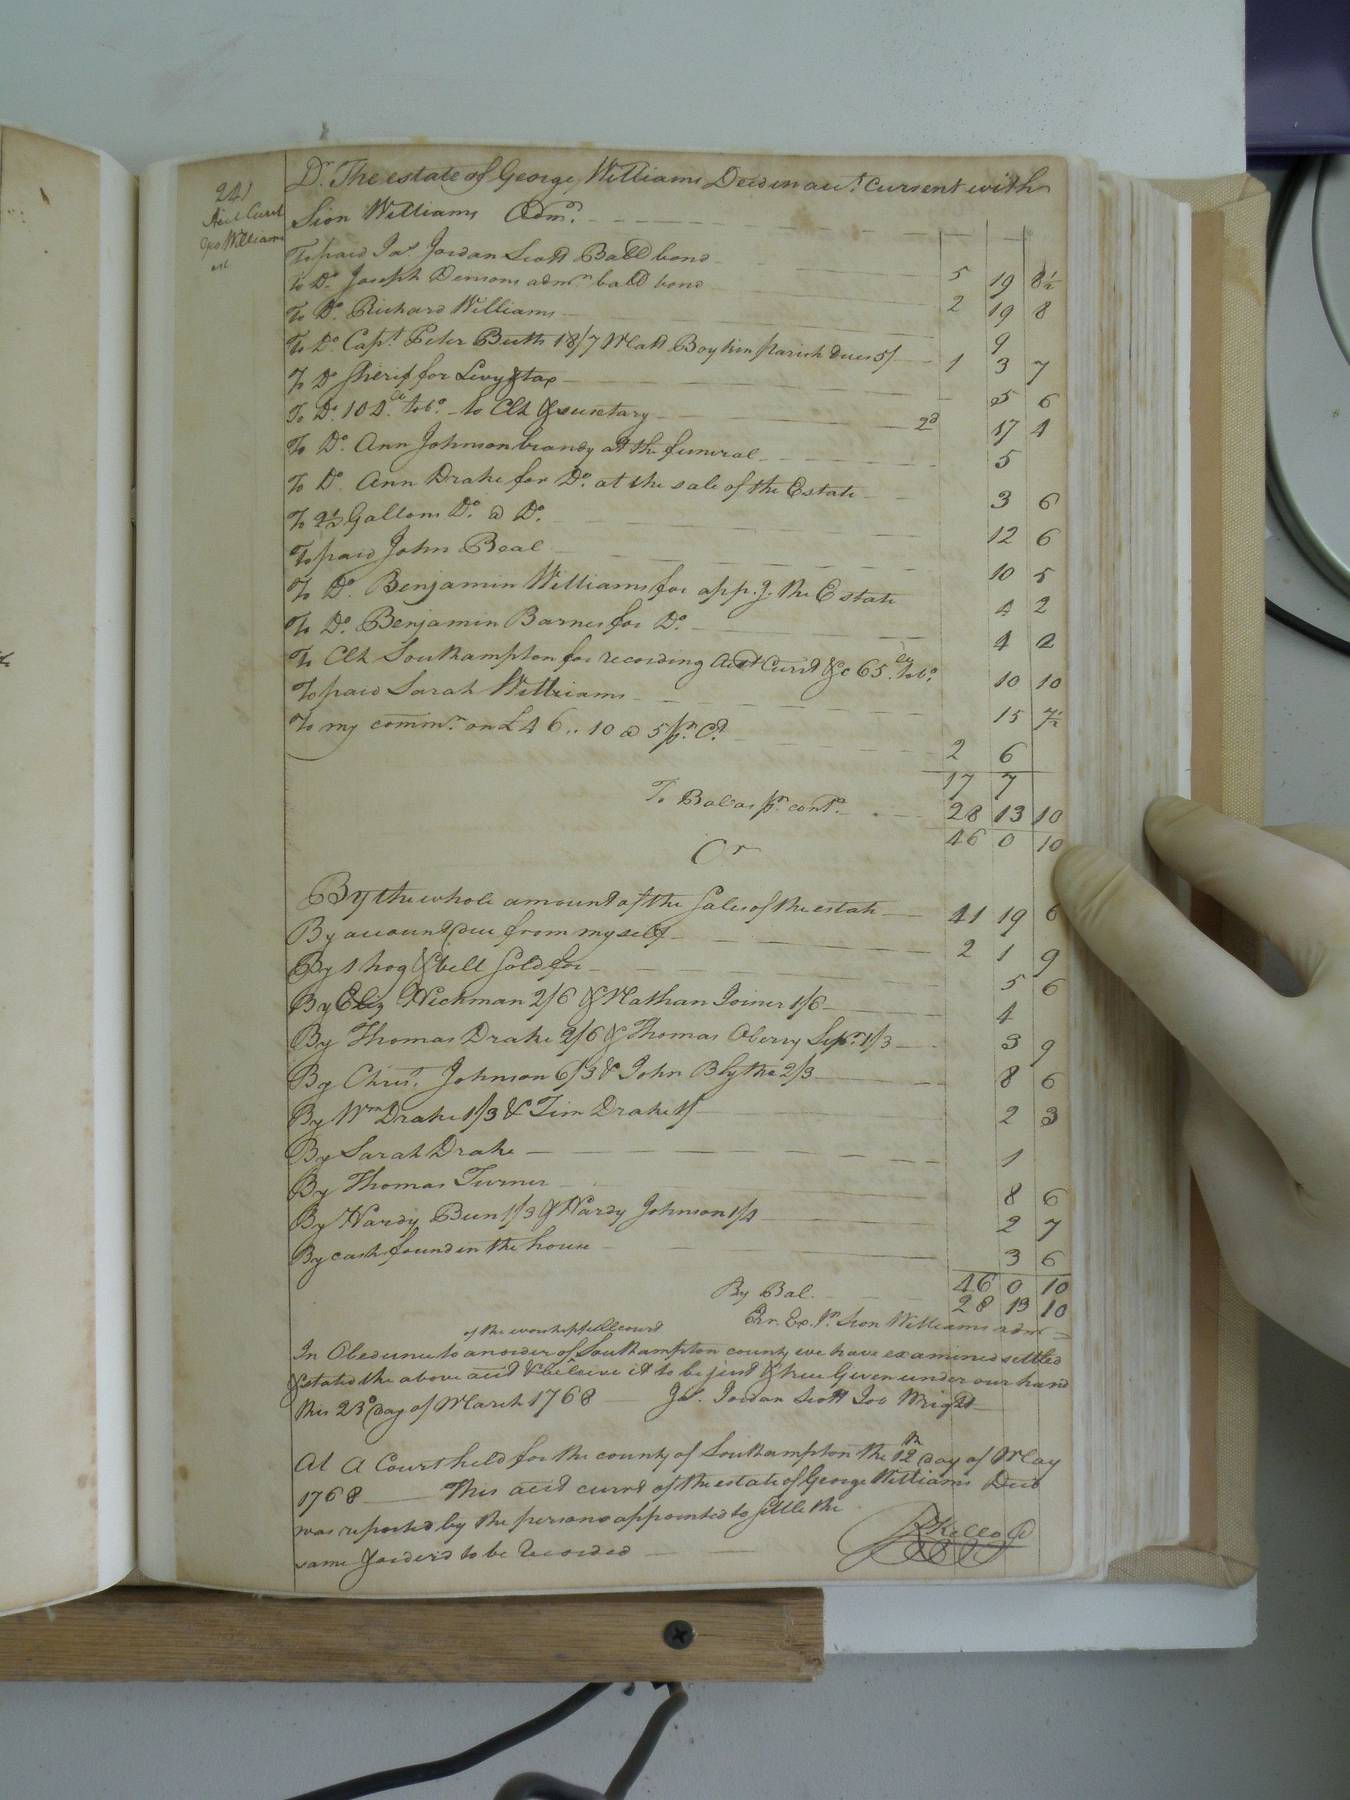 241
Acct Currt
Geo Williams
est
Dr. The estate of George Williams Decd in acct. Current with
Sion Williams Admr.
To paid Jas. Jordan Scott Balle bond 5 19 8½
To Do. Joseph Densons admr. balle bond 2 19 8
To Do. Richard Williams 9
To Do. Capt. Peter Butts 18/7 Matt Boykin parish dues 5/ 1 3 7
To Do Sherif for Levy & tax 5 6
To Do. 104 lb tobo. to Clk & secretary 2d 17 4
To Do. Ann Johnson brandy at the funeral 5
To Do. Ann Drake for Do. at the sale of the Estate 3 6
To 2½ Gallons Do. @ Do. 12 6
To paid John Beal 10 5
To Do. Benjamin Williams for app.g. the Estate 4 2
To Do. Benjamin Barnes for Do. 4 2
To Clk Southampton for recording acct Currt &c 65 lb tobo. 10 10
To paid Sarah Williams 15 7½
To my commn. on £46..10 @ 5 pr. Ct. 2 6
17 7
To Bal as pr. conta. 28 13 10
46 0 10
Cr
By the whole amount of the sales of the estate 41 19 6
By account due from myself 2 1 9
By 1 hog & bell sold for 5 6
By Eliz Hickman 2/6 & Nathan Joiner 1/6 4
By Thomas Drake 2/6 & Thomas Oberry Senr. 1/3 3 9
By Christ. Johnson 6/3 & John Blythe 2/3 8 6
By Wm Drake 1/3 & Tim Drake 1/ 2 3
By Sarah Drake 1
By Thomas Turner 8 6
By Hardy Bunn 1/3 & Hardy Johnson 1/4 2 7
By cash found in the house 3 6
46 0 10
By Bal. 28 13 10
Err. Ex. pr. Sion Williams admr
of the worshipfull court
In Obedience to an order of Southampton county we have examined settled
& stated the above acct & believe it to be just & true Given under our hand
this 23d day of March 1768 Jas. Jordan Scott Job Wright
At A Court held for the county of Southampton the 12th day of May
1768 This acct currt of the estate of George Williams Decd
was reported by the persons appointed to settle the
same & orderd to be Recorded
R Kello